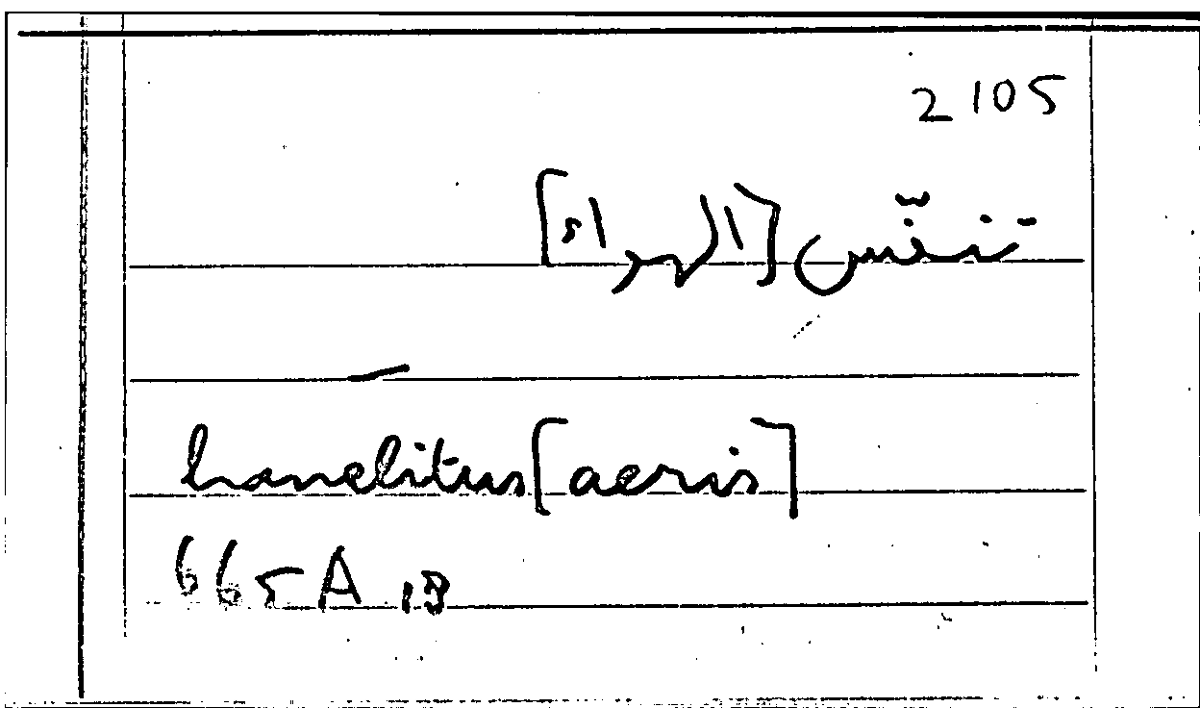 2105
تنفّس [الهواء]
hanelitus [aeris]
665 A 13